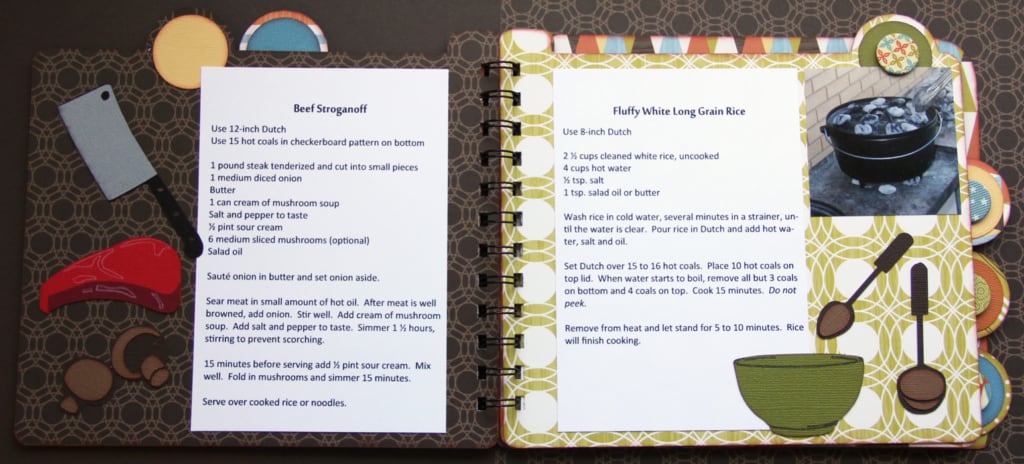 Beef Stroganoff
Use 12-inch Dutch
Use 15 hot coals in checkerboard pattern on bottom
1 pound steak tenderized and cut into small pieces
1 medium diced onion
Butter
1 can cream of mushroom soup
Salt and pepper to taste
½ pint sour cream
6 medium sliced mushrooms (optional)
Salad oil
Sauté onion in butter and set onion aside.
Sear meat in small amount of hot oil. After meat is well
browned, add onion. Stir well. Add cream of mushroom
soup. Add salt and pepper to taste. Simmer 1 ½ hours,
stirring to prevent scorching.
15 minutes before serving add ½ pint sour cream. Mix
well. Fold in mushrooms and simmer 15 minutes.
Serve over cooked rice or noodles.
Fluffy White Long Grain Rice
Use 8-inch Dutch
2 ½ cups cleaned white rice, uncooked
4 cups hot water
½ tsp. salt
1 tsp. salad oil or butter
Wash rice in cold water, several minutes in a strainer, un-
til the water is clear. Pour rice in Dutch and add hot wa-
ter, salt and oil.
Set Dutch over 15 to 16 hot coals. Place 10 hot coals on
top lid. When water starts to boil, remove all but 3 coals
on bottom and 4 coals on top. Cook 15 minutes. Do not
peek.
Remove from heat and let stand for 5 to 10 minutes. Rice
will finish cooking.